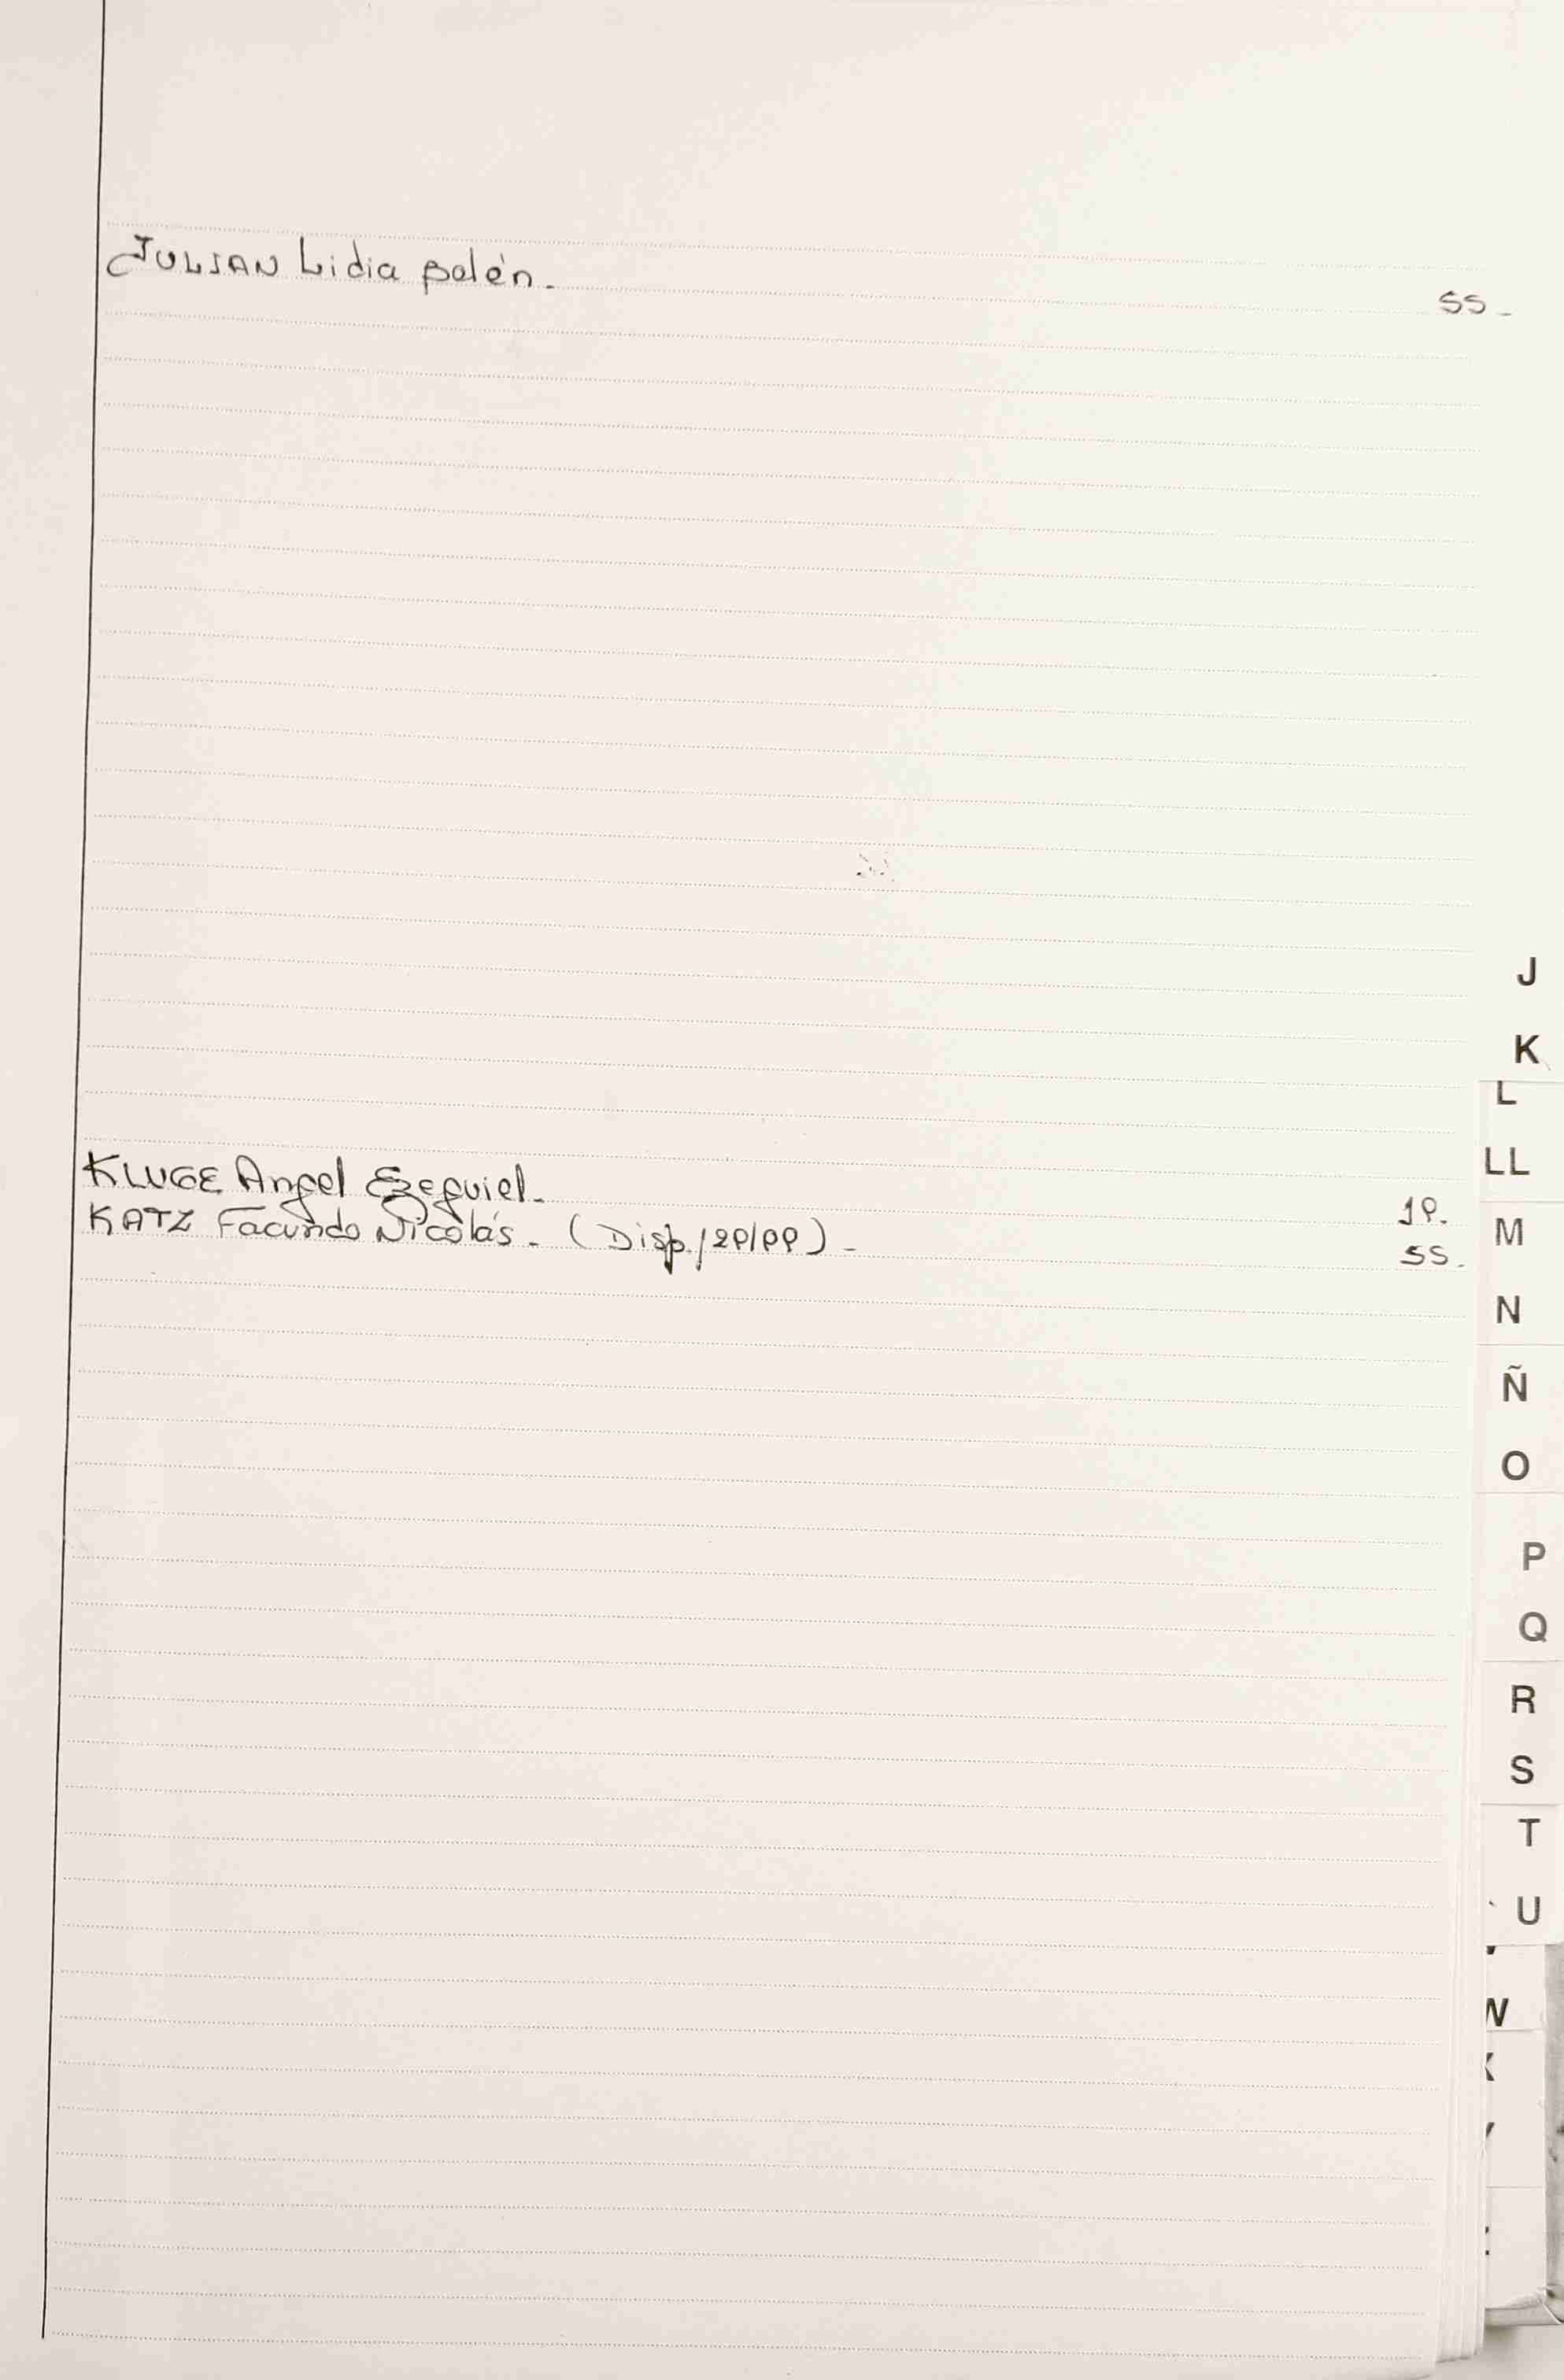 JULIAN Lidia Belén.
55-
J
K
L
LL
KLUGE Angel Ezequiel.
19.
KATZ Facundo Nicolás. (Disp./29/99)-
55.
M
N
Ñ
O
P
Q
R
S
T
U
W